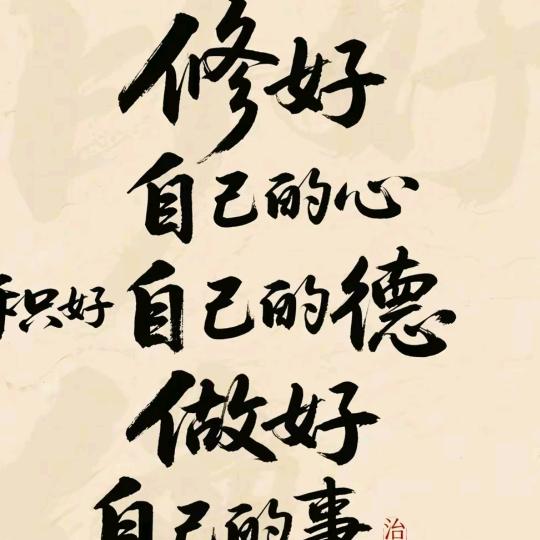 修好
自己的心
积好自己的德
做好
自己的事
治